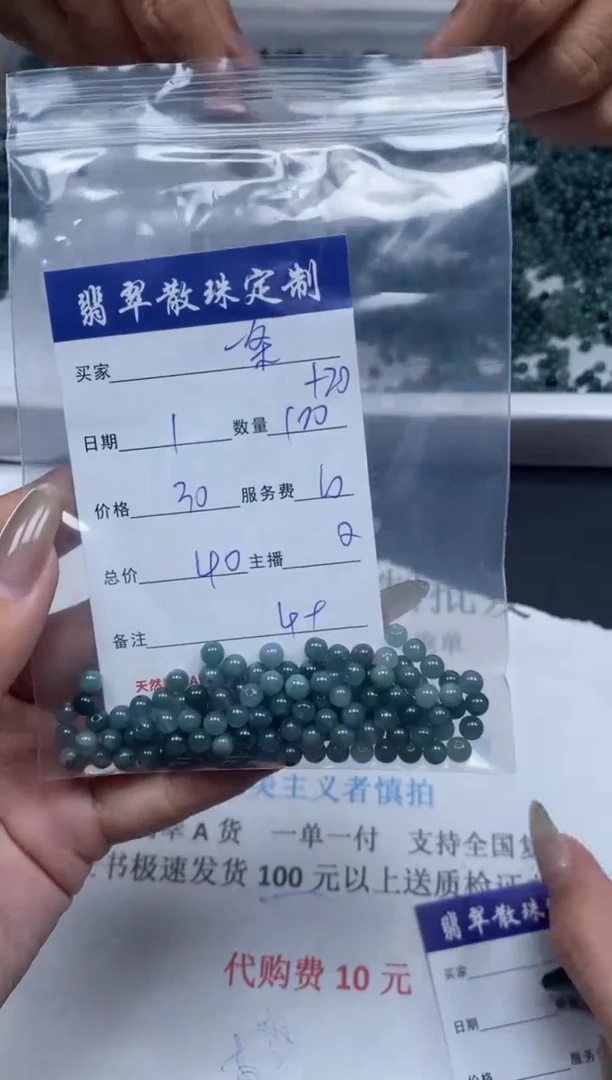 翡翠散珠定制
买家 一条
+20
日期 1 数量 170
价格 30 服务费 10
总价 40 主播 2
备注 4+
天然
美主义者慎拍
翠 A 货 一单一付 支持全国复
书极速发货 100 元以上送质检证
代购费 10 元
翡翠散珠
买家
日期
价格 服务